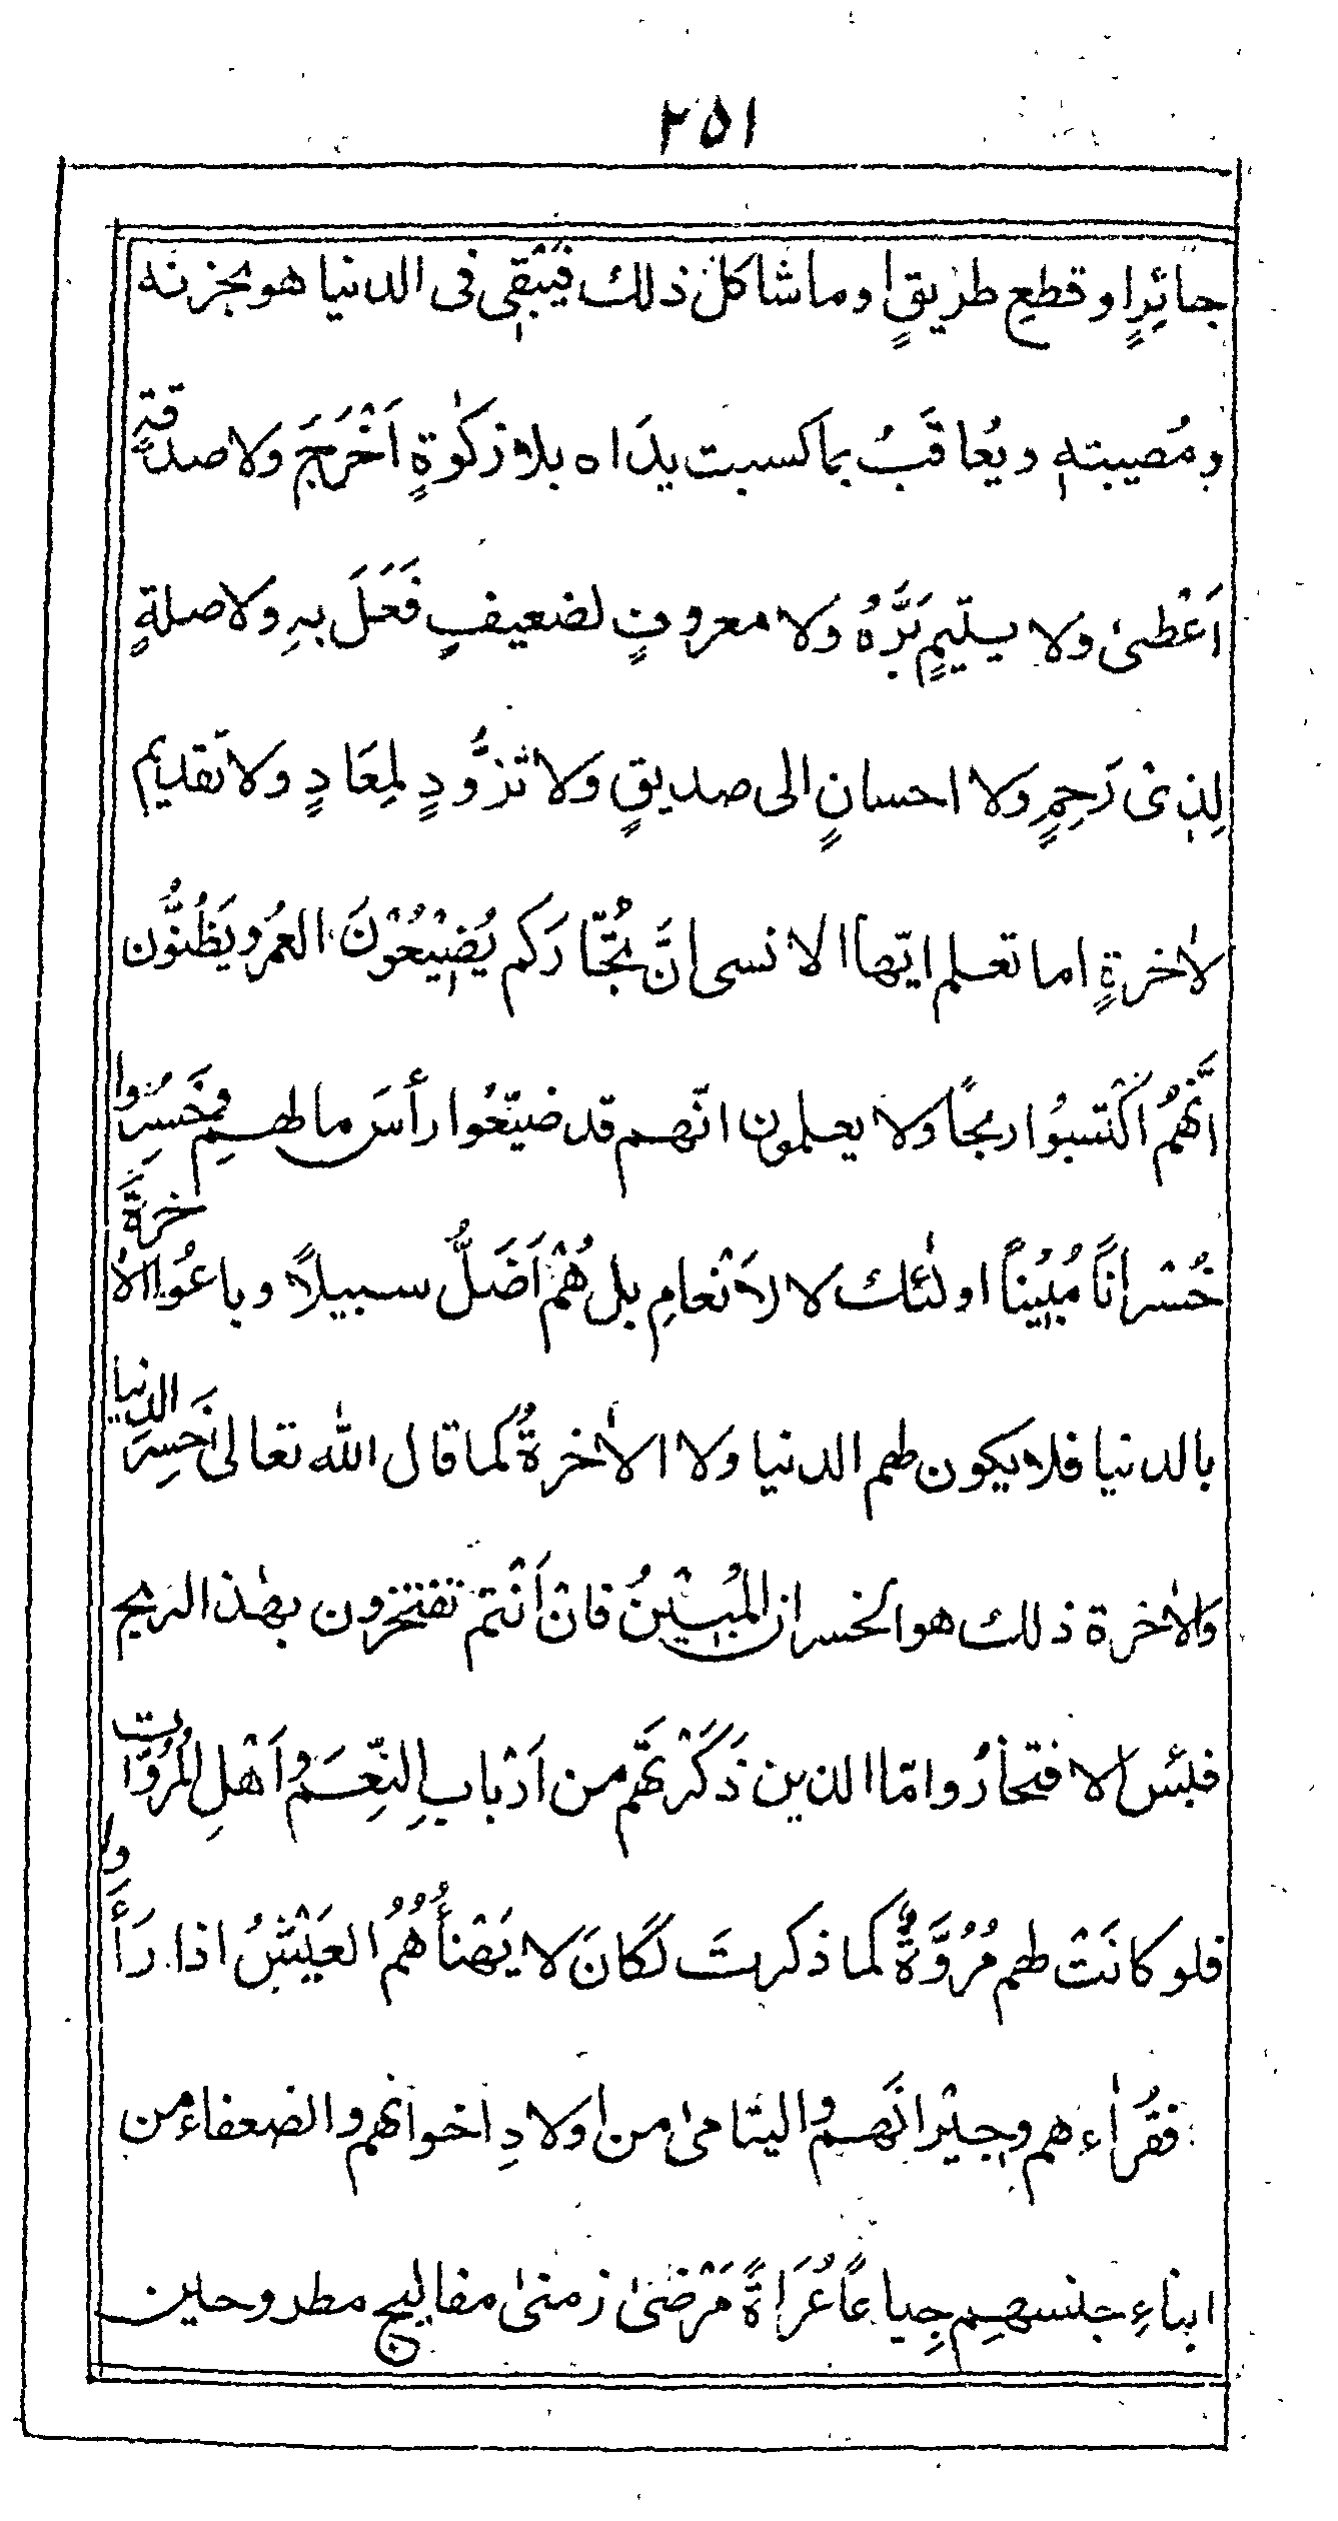 ٢٥١
جائِرٍ او قطعِ طريقٍ او ما شاكل ذلك فيَبْقى فى الدنيا هو بحزنه
ومُصيبته ويُعاقَبُ بما كسبت يدَاه بلا زكوٰةٍ اَخْرَجَ ولا صدقةٍ
اَعْطىٰ ولا يتيمٍ بَرَّهُ ولا معروفٍ لضعيفٍ فَعَلَ بهِ ولا صلةٍ
لِذِىْ رَحِمٍ ولا احسانٍ الى صديقٍ ولا تَزوُّدٍ لِمعَادٍ ولا تقديم
لاٰخرةٍ اما تعلم ايّها الانسى انَّ تُجّارَكم يُضيْعُوْنَ العُمرَ ويَظُنُّون
اَنَّهُمُ اكْتسبُوا ربحًا ولا يعلمون انّهم قد ضيّعُوا رأسَ مالهم وخَسِرُوا
خُسْرانًا مُبيْناً اولٰئك كالاَنْعامِ بل هُمْ اَضَلُّ سبيلاً وباعُوا الاٰخرةَ
بالدنيا فلا يكون لهم الدنيا ولا الاٰخرةُ كما قال اللّٰه تعالى خَسِرَ الدنيا
والاٰخرة ذلك هو الخسران المُبيْنُ فانْ اَنْتم تفتخرون بهٰذا الربح
فبئس الافتخارُ وامّا الذين ذَكَرْتَهم من اَرْبابِ النِّعَم واَهْلِ المُرُوَّات
فلو كانَتْ لهم مُرُوَّةٌ كما ذكرتَ لَكانَ لا يَهْنأُهُمُ العَيْشُ اذا رَأَوا
فقُرَاءهم وجيْرانَهم واليتامىٰ من اولادِ اخوانهم والضعفاء من
ابناءِ جنسهِم جِياعًا عُرَاةً مَرْضىٰ زمنىٰ مفاليج مطروحين